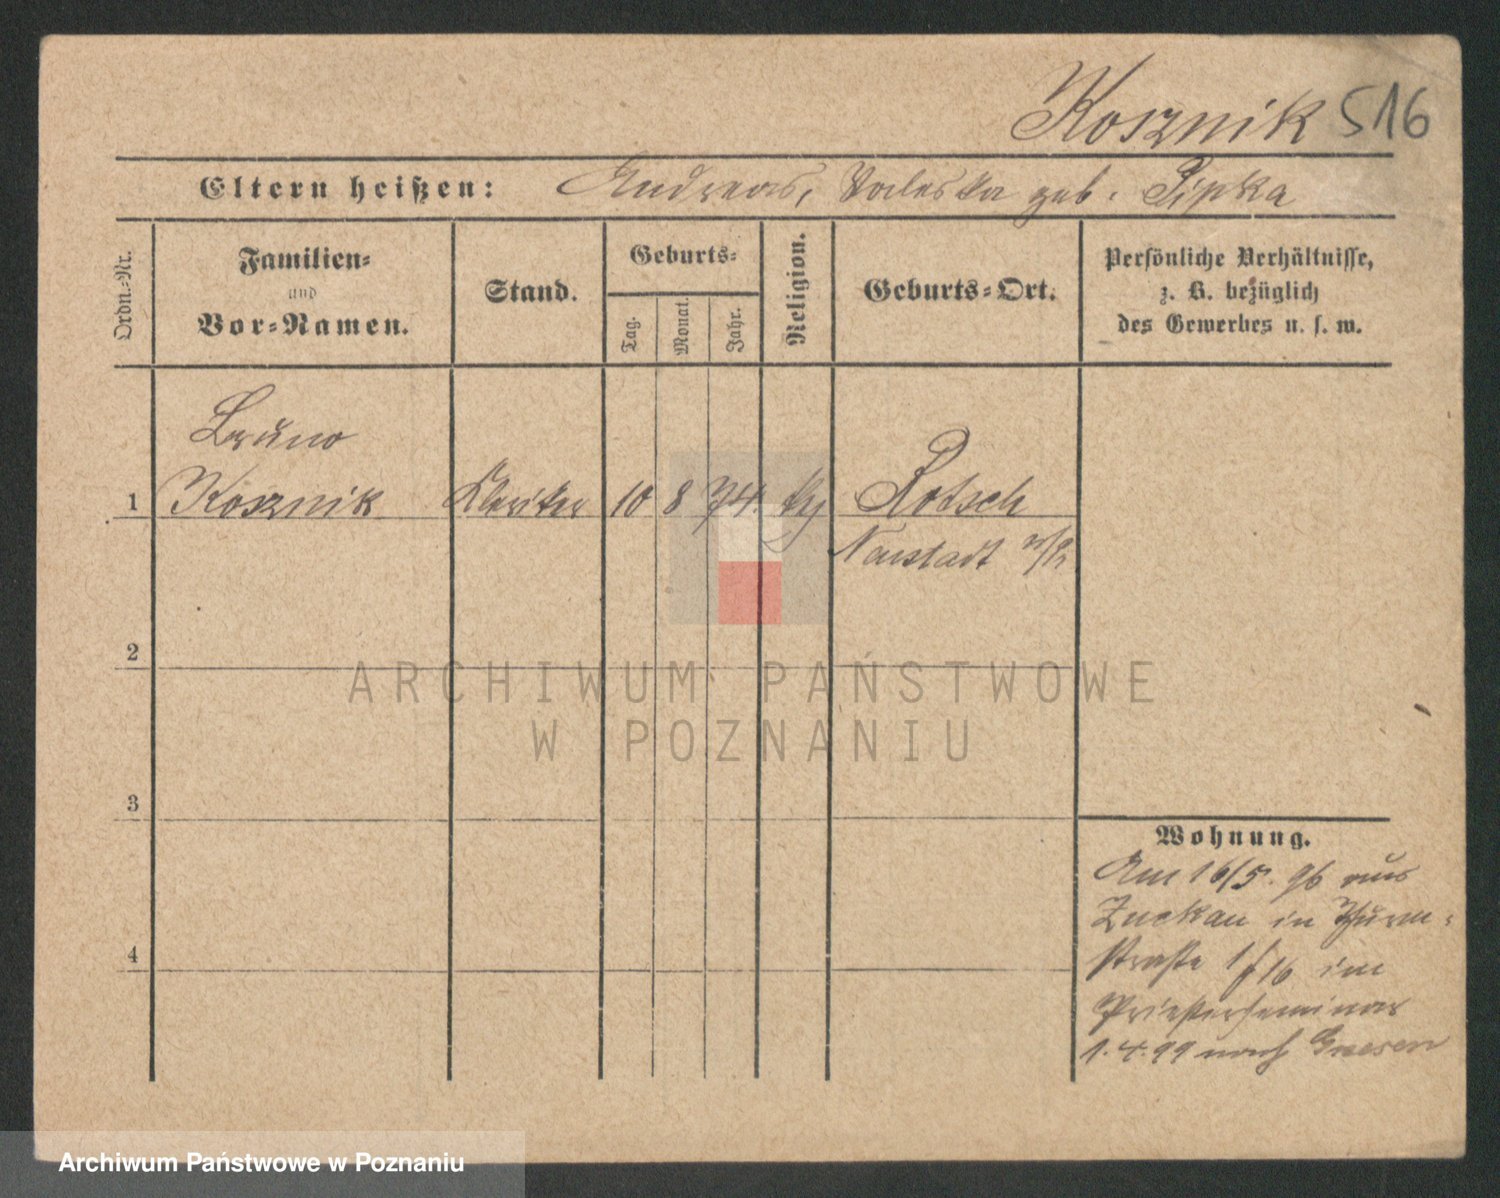 Kosznik 516
Eltern heißen: Andreas, Valeska geb. Pipka
Ordn.-Nr.
Familien-
und
Vor-Namen.
Stand.
Geburts-
Tag.
Monat.
Jahr.
Religion.
Geburts-Ort.
Persönliche Verhältnisse,
z. B. bezüglich
des Gewerbes u. s. w.
Bruno
1 Kosznik Kleriker 10 8 74. Rotsch
Neustadt w/Pr
2
3
4
Wohnung.
Am 16/5. 96 aus
Zuckau in Thurm-
straße 1/16 im
Priesterseminar
1.4.99 nach Gnesen
ARCHIWUM PAŃSTWOWE
W POZNANIU
Archiwum Państwowe w Poznaniu